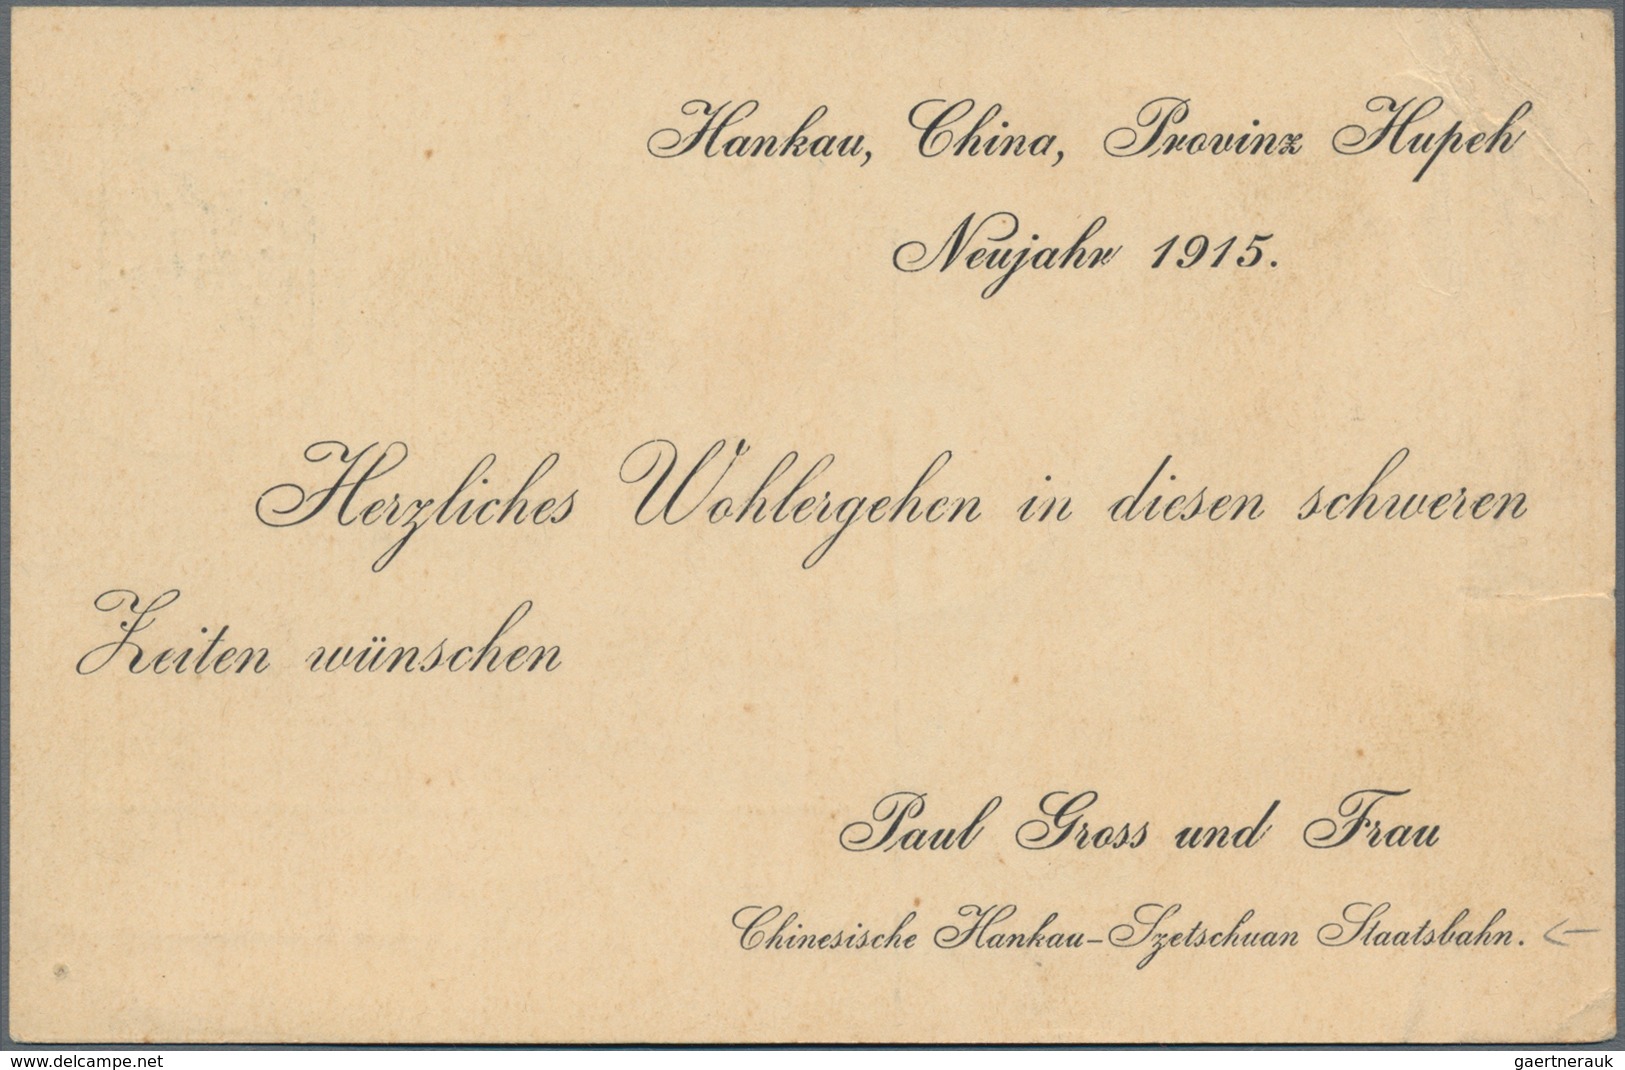 Hankau, China, Provinz Hupeh
Neujahr 1915.
Herzliches Wohlergehen in diesen schweren
Zeiten wünschen
Paul Gross und Frau
Chinesische Hankau-Szetschuan Staatsbahn.
www.delcampe.net
gaertnerauk